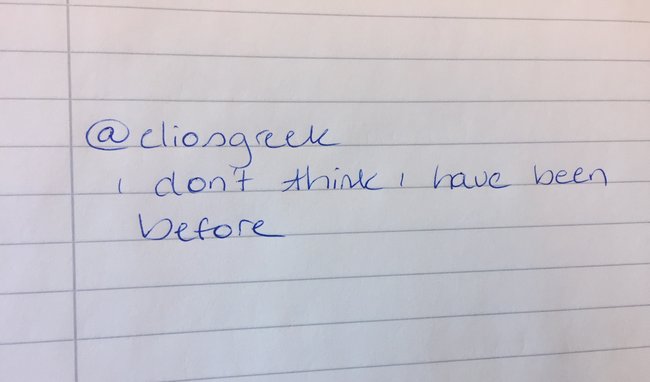 @cliosgreek
i don't think i have been
before